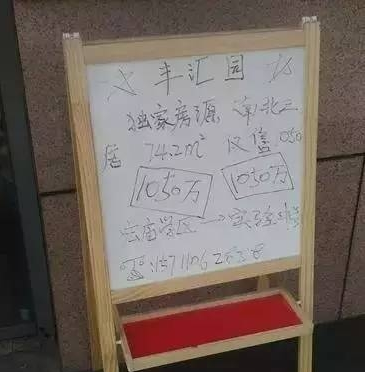 丰汇园
独家房源 南北三
居 74.2m² 仅售
1050万 1050万
宏庙学区→实验